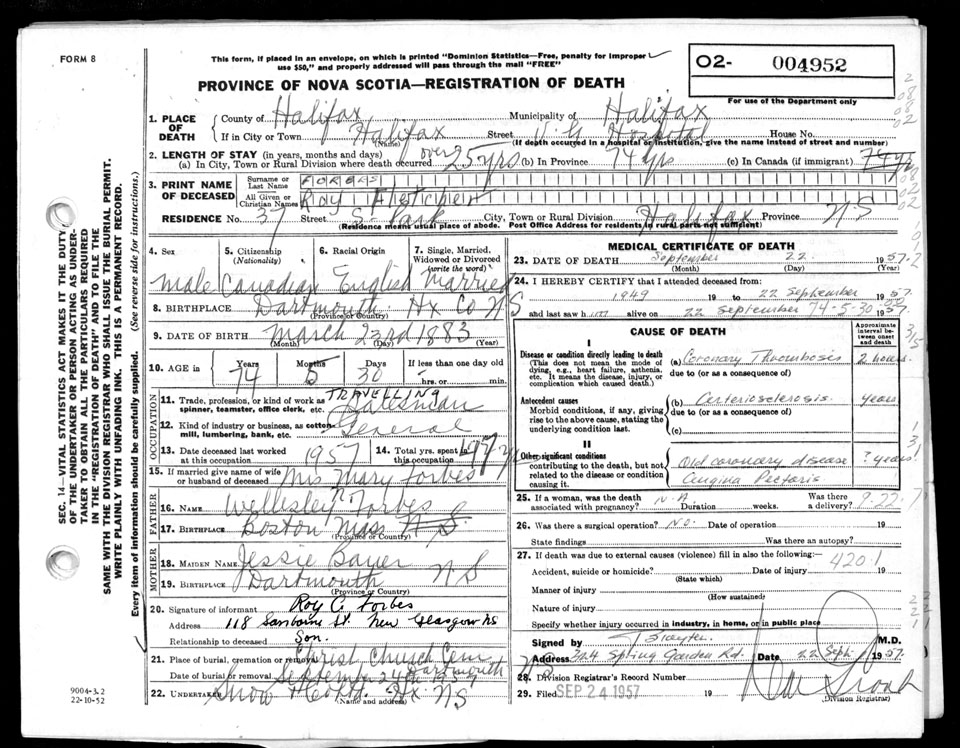 FORM 8
This form, if placed in an envelope, on which is printed "Dominion Statistics—Free, penalty for improper
use $50," and properly addressed will pass through the mail "FREE"
O2- 004952
For use of the Department only
PROVINCE OF NOVA SCOTIA—REGISTRATION OF DEATH
1. PLACE OF DEATH
County of Halifax Municipality of Halifax
If in City or Town Halifax Street V. G. Hospital House No.
(Name) (If death occurred in a hospital or institution, give the name instead of street and number)
2. LENGTH OF STAY (in years, months and days)
(a) In City, Town or Rural Division where death occurred over 25 yrs (b) In Province 74 yrs (c) In Canada (if immigrant) 74 yrs
3. PRINT NAME OF DECEASED
Surname or Last Name FORBES
All Given or Christian Names Roy Fletcher
RESIDENCE No. 37 Street S. Park City, Town or Rural Division Halifax Province NS
(Residence means usual place of abode. Post Office Address for residents in rural parts not sufficient)
4. Sex 5. Citizenship (Nationality) 6. Racial Origin 7. Single, Married, Widowed or Divorced (write the word)
Male Canadian English Married
8. BIRTHPLACE Dartmouth Hx Co NS
(Province or Country)
9. DATE OF BIRTH March 23rd 1883
(Month) (Day) (Year)
10. AGE in Years Months Days If less than one day old
74 5 30 hrs. or min.
OCCUPATION
11. Trade, profession, or kind of work as spinner, teamster, office clerk, etc. TRAVELLING Salesman
12. Kind of industry or business, as cotton mill, lumbering, bank, etc. General
13. Date deceased last worked at this occupation 1957
14. Total yrs. spent in this occupation
15. If married give name of wife or husband of deceased Mrs Mary Forbes
FATHER
16. NAME Forbes
17. BIRTHPLACE Boston Mass N S
(Province or Country)
MOTHER
18. MAIDEN NAME Jessie
19. BIRTHPLACE Dartmouth NS
(Province or Country)
20. Signature of informant Roy G. Forbes
Address 118 St. New Glasgow NS
Relationship to deceased Son.
21. Place of burial, cremation or removal Christ Church Cem Dartmouth
Date of burial or removal September 24th 1957
22. Undertaker Snow Hx NS
(Name and address)
MEDICAL CERTIFICATE OF DEATH
23. DATE OF DEATH September 22 1957
(Month) (Day) (Year)
24. I HEREBY CERTIFY that I attended deceased from:
1949 19 to 22 September 1957.
and last saw him alive on 22 September 1957.
CAUSE OF DEATH
Approximate interval between onset and death
I
Disease or condition directly leading to death
(This does not mean the mode of dying, e.g., heart failure, asthenia, etc. It means the disease, injury, or complication which caused death.)
(a) Coronary Thrombosis 2 hours
due to (or as a consequence of)
Antecedent causes
Morbid conditions, if any, giving rise to the above cause, stating the underlying condition last.
(b) Arteriosclerosis. years
due to (or as a consequence of)
(c)
II
Other significant conditions
contributing to the death, but not related to the disease or condition causing it.
Old coronary disease ? years
Angina Pectoris
25. If a woman, was the death associated with pregnancy? N.A Duration weeks. Was there a delivery?
9-22-7
26. Was there a surgical operation? No. Date of operation 19
State findings Was there an autopsy?
27. If death was due to external causes (violence) fill in also the following:—
Accident, suicide or homicide? Date of injury 19
(State which)
420.1
Manner of injury
(How sustained)
Nature of injury
Specify whether injury occurred in industry, in home, or in public place
Signed by M.D.
Address 324 Spring Garden Rd. Date 22 Sept 1957.
28. Division Registrar's Record Number
29. Filed SEP 24 1957 19
(Division Registrar)
SEC. 14—VITAL STATISTICS ACT MAKES IT THE DUTY
OF THE UNDERTAKER OR PERSON ACTING AS UNDER-
TAKER TO OBTAIN ALL THE PARTICULARS REQUIRED
IN THE "REGISTRATION OF DEATH" AND TO FILE THE
SAME WITH THE DIVISION REGISTRAR WHO SHALL ISSUE THE BURIAL PERMIT.
WRITE PLAINLY WITH UNFADING INK. THIS IS A PERMANENT RECORD.
Every item of information should be carefully supplied. (See reverse side for instructions.)
9004-3.2
22-10-52